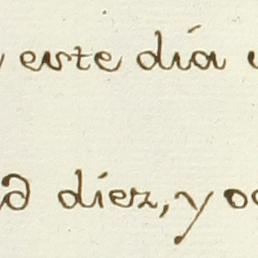 este dia
diez, y